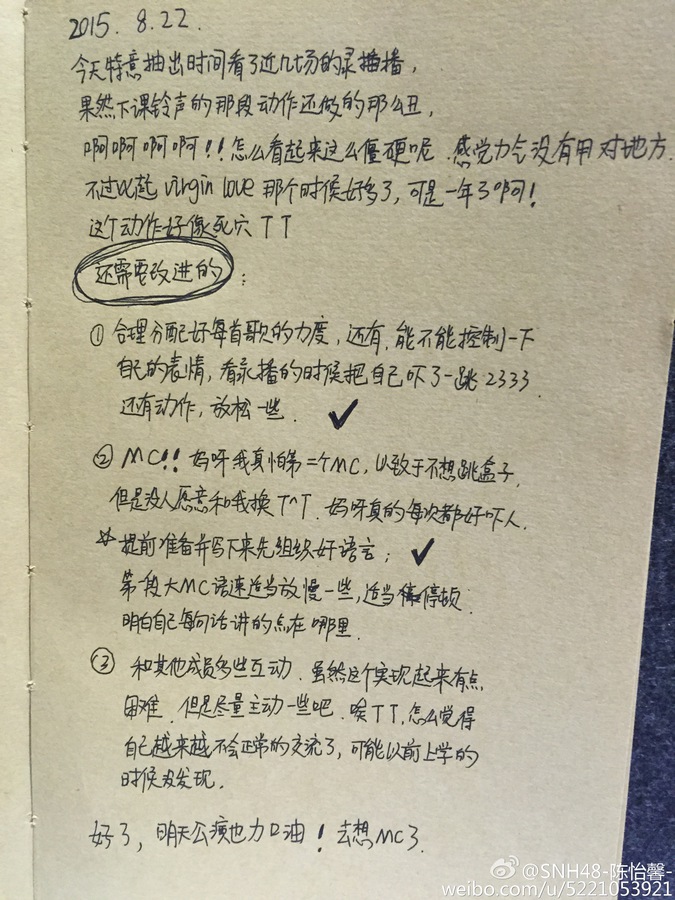 2015. 8.22.
今天特意抽出时间看了近几场的录播,
果然下课铃声的那段动作还做的那么丑,
啊啊啊啊!!怎么看起来这么僵硬呢.感觉力气没有用对地方.
不过比起 virgin love 那个时候好多了,可是一年了啊!
这个动作好像死穴TT
还需要改进的:
① 合理分配好每首歌的力度,还有,能不能控制一下
自己的表情,看录播的时候把自己吓了一跳2333.
还有动作,放松一些. ✓
② MC!! 妈呀我真怕第二个MC,以致于不想跳盒子,
但是没人愿意和我换T^T.妈呀真的每次都好吓人.
*提前准备并写下来先组织好语言; ✓
第一段大MC语速适当放慢一些,适当停顿.
明白自己每句话讲的点在哪里.
③ 和其他成员多些互动.虽然这个实现起来有点
困难.但是尽量主动一些吧.唉TT,怎么觉得
自己越来越不会正常的交流了,可能以前上学的
时候没发现.
好了,明天公演也力口油!去想MC了.
@SNH48-陈怡馨-
weibo.com/u/5221053921